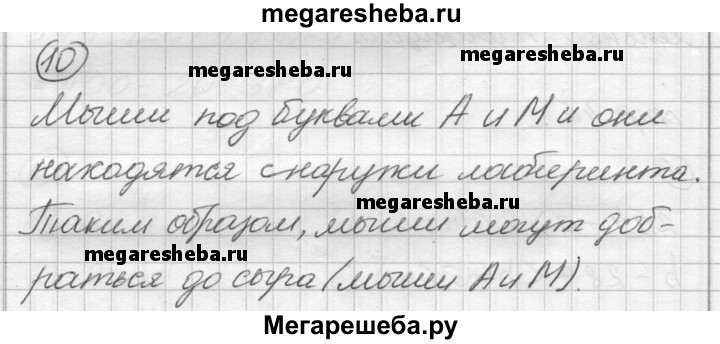 megaresheba.ru
10
megaresheba.ru
Мыши под буквами А и М и они
находятся снаружи лабиринта.
Таким образом, мыши могут доб-
megaresheba.ru
megaresheba.ru
раться до сыра (мыши А и М).
Мегарешеба.ру